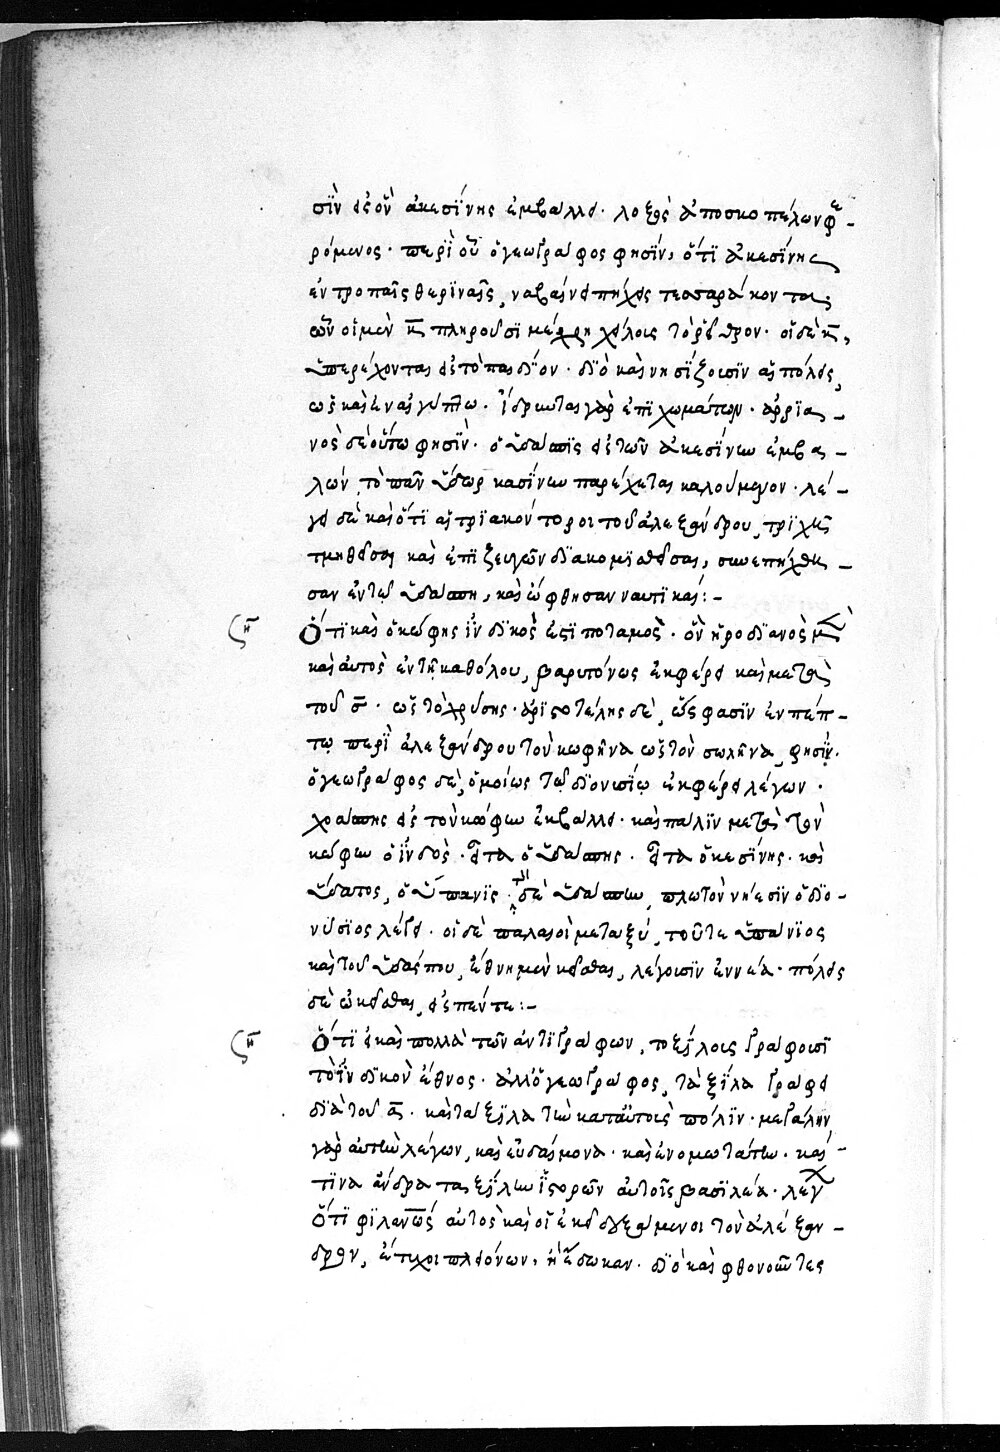 σϊν εἰς ὃν ἀκεσίνης ἐμβάλλει· λοξὸς ἀποσκοπέλων φε-
ρόμενος· περὶ οὗ ὁ γεωγράφος φησὶν, ὅτι ἀκεσίνης
ἐν τροπαῖς θεριναῖς, ναβαίνει πήχεις τεσσαράκοντα,
ὧν οἱ μὲν κ̄ πληροῦσι μέχρι χείλοις τὸ ῥεῖθρον· οἱ δὲ κ̄,
ὑπερέχονται εἰς τὸ παιδίον· διὸ καὶ νησίζουσιν αἱ πόλεις,
ὡς καὶ ἐν αἰγύπτω. ἵδρωται γὰρ ἐπὶ χωμάτων· ἀρρια-
νὸς δὲ οὕτω φησὶν· ὁ ὑδάσπϊς εἰς τὸν ἀκεσίνην ἐμβα-
λὼν, τὸ πᾶν ὕδωρ κασίνην παρέχεται καλούμενον· λέ-
γει δὲ καὶ ὅτι αἱ τριακόντοροι τοῦ ἀλεξάνδρου, τριχῆ
τμηθεῖσαι καὶ ἐπὶ ζευγῶν διακομισθεῖσαι, συνεπήχθη-
σαν ἐν τῷ ὑδάσπη, καὶ ὤφθησαν ναυτικαί:-
ζη Ὅτι καὶ ὁ κώφης ἰνδικὸς ἐστὶ ποταμὸς. ὃν ἡρωδιανὸς μὲν
καὶ αὐτὸς ἐν τῆ καθόλου, βαρυτόνως ἐκφέρει καὶ μετὰ
τοῦ σ̄· ὡς τὸ χρύσης· ἀριστοτέλης δὲ, ὥς φασιν ἐν πέπ-
τῳ περὶ ἀλεξάνδρου τὸν κωφῆνα ὡς τὸν σωλῆνα, φησὶν.
ὁ γεωγράφος δὲ, ὁμοίως τῷ διονυσίῳ ἐκφέρει λέγων.
χοάσπης εἰς τὸν κώφην ἐμβάλλει. καὶ πάλιν μετὰ τὸν
κώφην ὁ ἰνδὸς. εἶτα ὁ ὑδάσπης. εἶτα ὁ κεσίνης. καὶ
ὕδατος, ὁ ὕπανις. τὸν δὲ ὑδάσπην, πλωτὸν νήεσιν ὁ διο-
νύσιος λέγει. οἱ δὲ παλαιοὶ μεταξὺ, τοῦ τε ὑπάνιος
καὶ τοῦ ὑδάσπου, ἔθνη μὲν κεῖσθαι, λέγουσιν ἐννέα· πόλεις
δὲ ὠκεῖσθαι, εἰς πέντε:-
ζη Ὅτι εἰ καὶ πολλὰ τῶν ἀντιγράφων, τοξίλοις γράφουσι
τὸ ἰνδικὸν ἔθνος· ἀλλ' ὁ γεωγράφος, τάξιλα γράφει
διὰ τοῦ ᾱ. καὶ τάξιλα τὴν κατ' αὐτοὺς πόλιν· μεγάλην
γὰρ αὐτὴν λέγων, καὶ εὐδαίμονα· καὶ εὐνομωτάτην. καί
τινα ἄνδρα ταξίλην ἱστορῶν αὐτοῖς βασιλέα. λέγει
ὅτι φιλανος αὐτὸς καὶ οἱ ἐκεῖ δεξάμενοι τὸν ἀλέξαν-
δρον, ἔτυχον πλειόνων, ἢ ἔδωκαν· διὸ καὶ φθονοῦντες